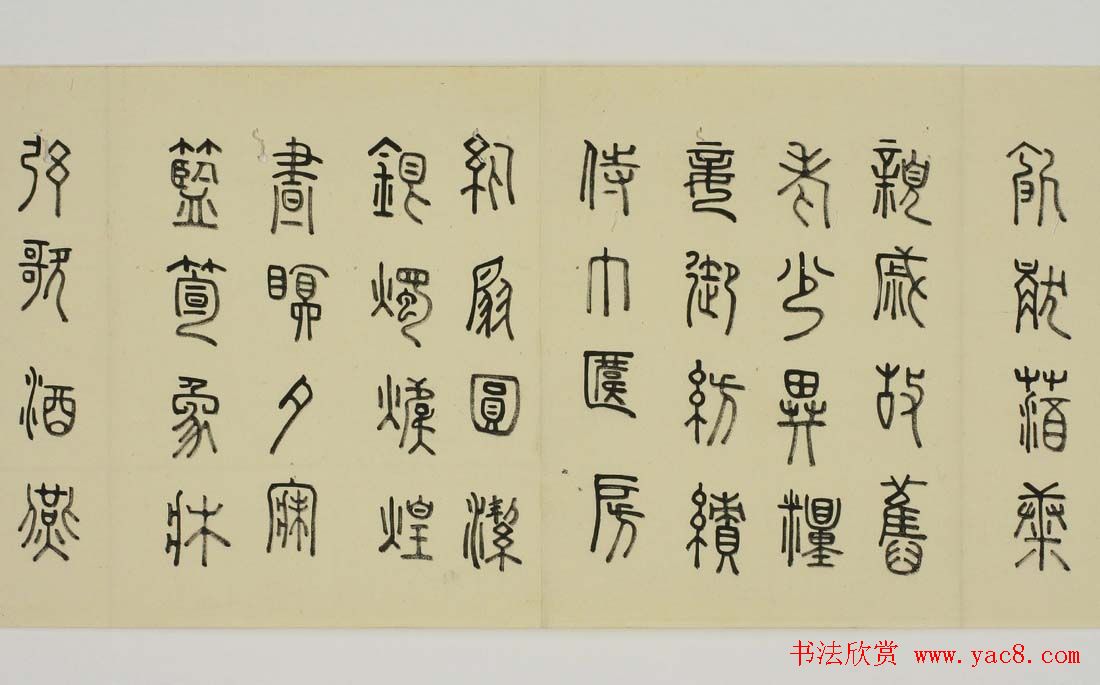 飢猒
親戚故舊
老少異糧
妾御紡績
侍巾房
紈扇圓潔
銀燭煒煌
晝瞑夕寐
籃筍象牀
弦歌酒燕
书法欣赏 www.yac8.com